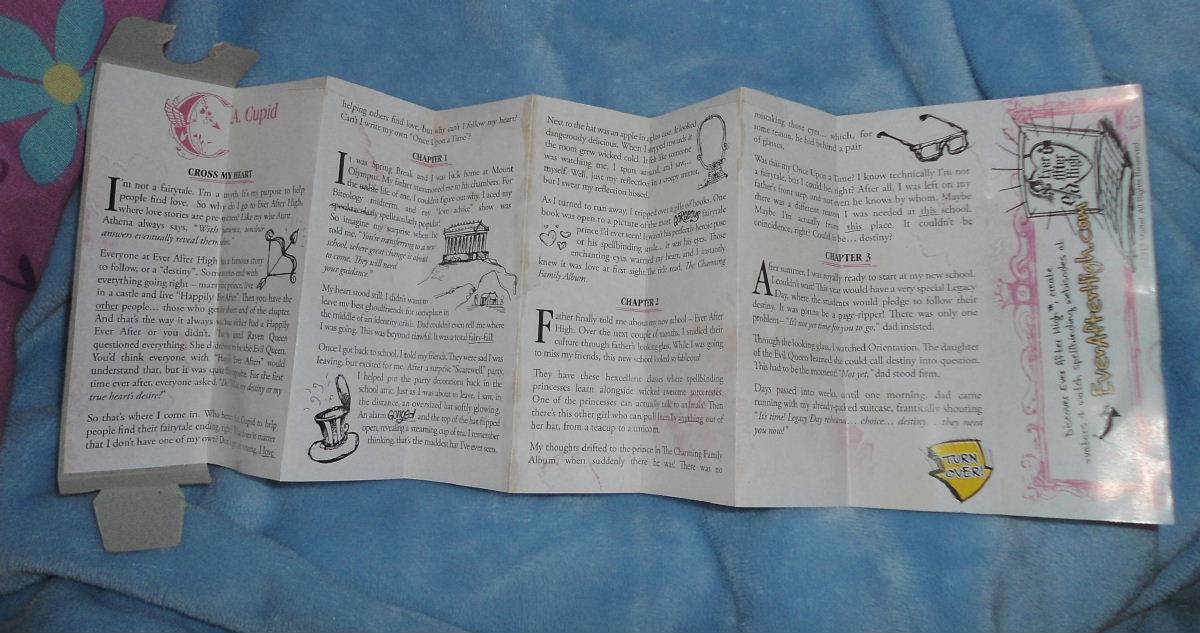 C.A. Cupid
CROSS MY HEART
I'm not a fairytale. I'm a myth. It's my purpose to help
people find love. So why do I go to Ever After High,
where love stories are pre-written? Like my wise Aunt
Athena always says, "With patience, senior
answers eventually reveal themselves."
Everyone at Ever After High has a famous story
to follow, or a "destiny". Some stories end with
everything going right – marry a prince, live
in a castle and live "Happily Ever After". Then you have the
other people… those who get the short end of the chapter.
And that's the way it always was. You either had a Happily
Ever After or you didn't. That is until Raven Queen
questioned everything. She didn't want to be the Evil Queen.
You'd think everyone with "Happily Ever Afters" would
understand that, but it was quite the opposite. For the first
time ever after, everyone asked, "Do I follow my destiny or my
true heart's desire?"
So that's where I come in. Who better than Cupid to help
people find their fairytale ending, right? But does it matter
that I don't have one of my own? Don't get me wrong, I love
helping others find love, but why can't I follow my heart?
Can't I write my own "Once Upon a Time"?
CHAPTER 1
It was Spring Break and I was back home at Mount
Olympus. My father summoned me to his chambers. For
the life of me, I couldn't figure out why. I aced my
Eterology midterm, and my "love advice" show was
spellacularly popular.
So imagine my surprise when he
told me, "You're transferring to a new
school, where great change is about
to come. They will need
your guidance."
My heart stood still. I didn't want to
leave my best ghoulfriends for someplace in
the middle of an identity crisis. Dad couldn't even tell me where
I was going. This was beyond clawful. It was a total fairy-fail!
Once I got back to school, I told my friends. They were sad I was
leaving, but excited for me. After a surprise "Scarewell" party,
I helped put the party decorations back in the
school attic. Just as I was about to leave, I saw, in
the distance, an oversized hat softly glowing.
An alarm gonged and the top of the hat flipped
open, revealing a steaming cup of tea. I remember
thinking, that's the maddest hat I've ever seen.
Next to the hat was an apple in a glass case. It looked
dangerously delicious. When I stepped towards it
the room grew wicked cold. It felt like someone
was watching me. I spun around, and I saw…
myself. Well, just my reflection in a creepy mirror,
but I swear my reflection hissed.
As I turned to run away, I tripped over a pile of books. One
book was open to a picture of the most gorgeous fairytale
prince I'd ever seen! It wasn't his perfectly heroic pose
or his spellbinding smile… it was his eyes. Those
enchanting eyes warmed my heart, and I instantly
knew it was love at first sight! The title read, The Charming
Family Album.
CHAPTER 2
Father finally told me about my new school – Ever After
High. Over the next couple of months, I studied their
culture through father's looking glass. While I was going
to miss my friends, this new school looked so fableous!
They have these hexcellent classes where spellbinding
princesses learn alongside wicked awesome sorceresses.
One of the princesses can actually talk to animals! Then
there's this other girl who can pull literally anything out of
her hat, from a teacup to a unicorn.
My thoughts drifted to the prince in The Charming Family
Album, when suddenly there he was! There was no
mistaking those eyes… which, for
some reason, he hid behind a pair
of glasses.
Was this my Once Upon a Time? I know technically I'm not
a fairytale, but I could be, right? After all, I was left on my
father's front step, and not even he knows by whom. Maybe
there was a different reason I was needed at this school.
Maybe I'm actually from this place. It couldn't be
coincidence, right? Could it be… destiny?
CHAPTER 3
After summer, I was royally ready to start at my new school.
I couldn't wait! This year would have a very special Legacy
Day, where the students would pledge to follow their
destiny. It was gonna be a page-ripper! There was only one
problem – "It's not yet time for you to go," dad insisted.
Through the looking glass, I watched Orientation. The daughter
of the Evil Queen learned she could call destiny into question.
This had to be the moment! "Not yet," dad stood firm.
Days passed into weeks, until one morning, dad came
running with my already-packed suitcase, frantically shouting
"It's time! Legacy Day rehearsal… choice… destiny… they need
you now!"
TURN
OVER!
Ever
After
High
Discover Ever After High™, create
avatars & watch spellbinding webisodes at
EverAfterHigh.com
Mattel. All Rights Reserved.